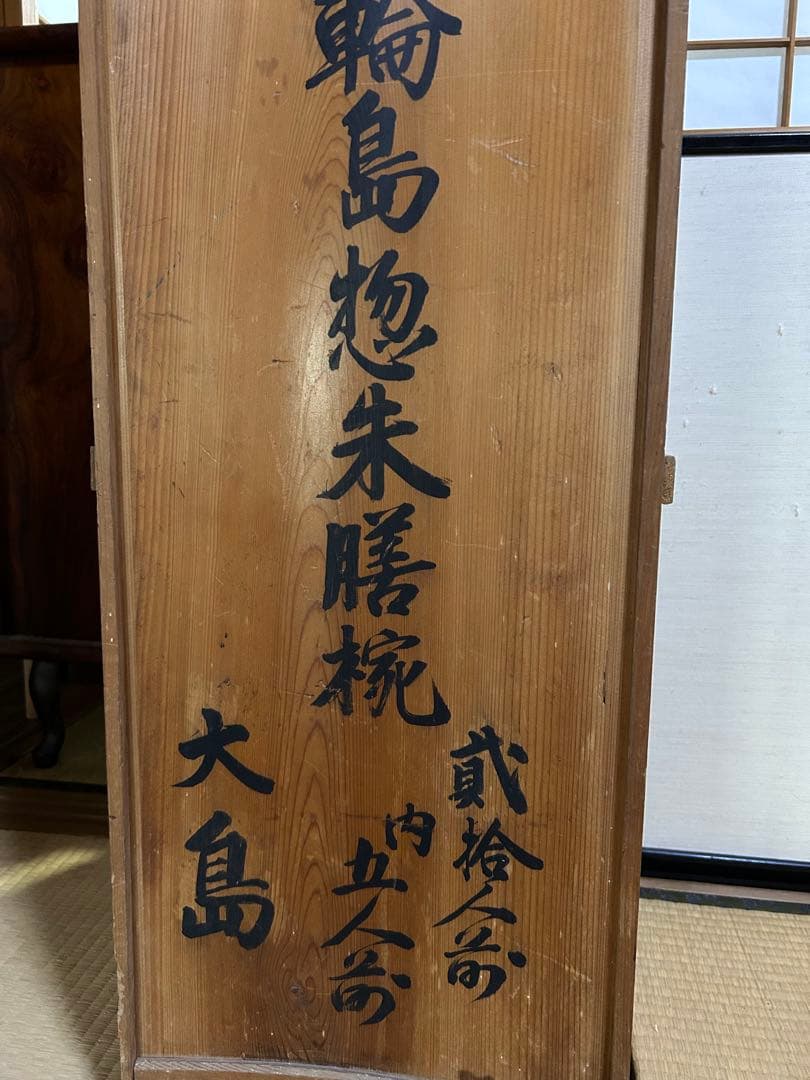 輪島惣朱膳椀
貳拾人前
内五人前
大島